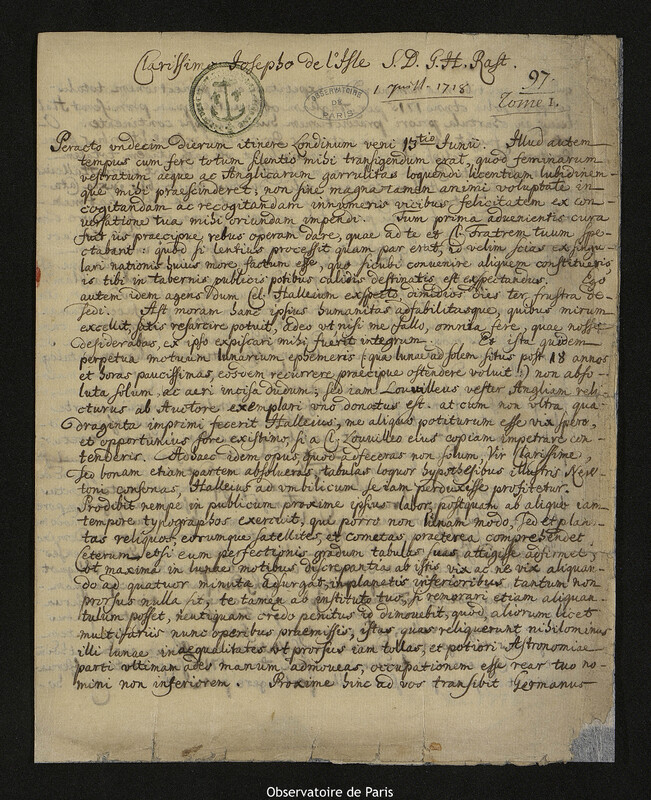 Clarissimo Josepho de l'Isle S. D. G. H. Rast.
1 Juill. 1718
97.
Tome 1.
OBSERVATOIRE
DE
PARIS
Peracto undecim dierum itinere Londinum veni 15tio Junii. Illud autem
tempus cum fere totum silentio mihi transigendum erat, quod feminarum
vestratum aeque ac Anglicarum garrulitas loquendi licentiam lubidinem
que mihi praescinderet; non sine magna tamen animi voluptate in
cogitandam ac recogitandam innumeris vicibus felicitatem ex con
versatione tua mihi oriundam impendi. Tum prima advenientis cura
fuit, iis praecipue rebus operam dare, quae ad te et Cl. Fratrem tuum spe
ctabant: quod si lentius processit quam par erat, id velim scias ex singu
lari nationis huius more factum esse, quo sicubi convenire aliquem constitueris,
is tibi in tabernis publicis potibus calidis destinatis est exspectandus. Ego
autem idem agens dum Cel. Halleium exspecto, ter frustra de
sedi. Ast moram hanc ipsius humanitas adfabilitasque, quibus mirum
excellit, satis resarcire potuit, adeo ut nisi me fallo, omnia fere, quae nosse
desiderabas, ex ipso expiscari mihi fuerit integrum. Et ista quidem
perpetua motuum lunarium ephemeris (qua lunae ad solem situs post 18 annos
et horas paucissimas, eosdem recurrere praecipue ostendere voluit) non abso
luta solum, ac aeri incisa dudum; sed iam Louvilleus vester Angliam reli
cturus ab Auctore exemplari uno donatus est. at cum non ultra qua
draginta imprimi fecerit Halleius, me aliquo potiturum esse vix spero,
et opportunius fore existimo, si a Cl. Louvilleo eius copiam impetrare con
tenderis. Adhaec idem opus, quod adfeceras non solum, Vir Clarissime,
sed bonam etiam partem absolueras, tabulas loquor hypothesibus illustris New
toni consonas, Halleius ad umbilicum se iam perduxisse profitetur.
Prodibit nempe in publicum proxime ipsius labor, postquam ab aliquo iam
tempore typographos exercuit, qui porro non lunam modo, sed et plane
tas reliquos, eorumque satellites, et cometas, praeterea comprehendet.
Ceterum etsi eum perfectionis gradum tabulas suas attigisse adfirmet,
ut maxima in lunae motibus discrepantia ab istis vix ac ne vix aliquan
do ad quatuor minuta adsurgat, in planetis inferioribus tantum non
prorsus nulla sit, te tamen ab instituto tuo, si remorari etiam aliquan
tulum posset, neutiquam credo penitus id dimovebit, quod, aliorum licet
multifariis nunc operibus praemissis, istas quas reliquerunt nihilominus
illi lunae inaequalitates ut prorsus iam tollas, et potiori Astronomiae
parti ultimam ades manum admoveas, occupationem esse rear tuo no
mini non inferiorem. Proxime hinc ad vos transibit Germanus
Observatoire de Paris